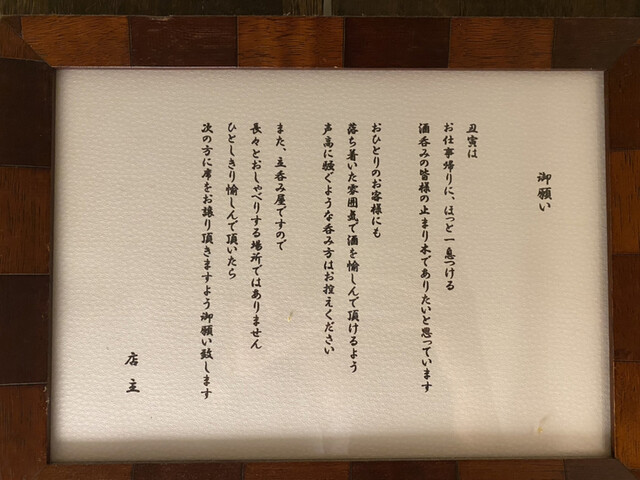 御願い
丑寅は
お仕事帰りに、ほっと一息つける
酒呑みの皆様の止まり木でありたいと思っています
おひとりのお客様にも
落ち着いた雰囲気で酒を愉しんで頂けるよう
声高に騒ぐような呑み方はお控えください
また、立呑み屋ですので
長々とおしゃべりする場所ではありません
ひとしきり愉しんで頂いたら
次の方に席をお譲り頂きますよう御願い致します
店主